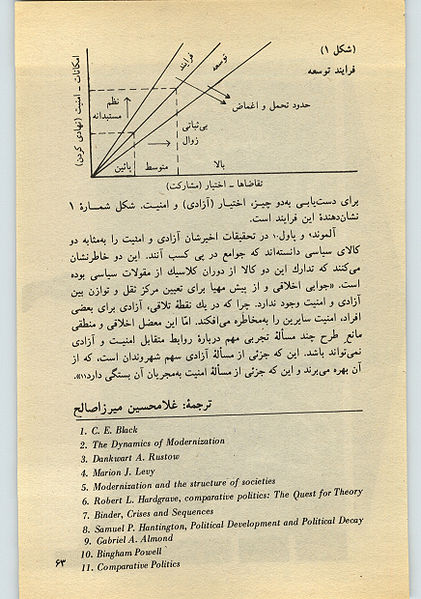 (شکل ۱)
فرایند توسعه
امکانات ـ امنیت (نهادی کردن)
فرایند
توسعه
نظم
مستبدانه
حدود تحمل و اغماض
بی‌ثباتی
زوال
پائین
متوسط
بالا
تقاضاها ـ اختیار (مشارکت)
برای دست‌یابی به‌دو چیز، اختیار (آزادی) و امنیت. شکل شمارهٔ ۱
نشان‌دهندهٔ این فرایند است.
آلموند۹ و پاول۱۰ در تحقیقات اخیرشان آزادی و امنیت را به‌مثابه دو
کالای سیاسی دانسته‌اند که جوامع در پی کسب آنند. این دو خاطرنشان
می‌کنند که تدارك این دو کالا از دوران کلاسیك از مقولات سیاسی بوده
است. «جوابی اخلاقی و از پیش مهیا برای تعیین مرکز ثقل و توازن بین
آزادی و امنیت وجود ندارد. چرا که در یك نقطهٔ تلاقی، آزادی برای بعضی
افراد، امنیت سایرین را به‌مخاطره می‌افکند. امّا این معضل اخلاقی و منطقی
مانع طرح چند مسألهٔ تجربی مهم دربارهٔ روابط متقابل امنیت و آزادی
نمی‌تواند باشد. این که جزئی از مسألهٔ آزادی سهم شهروندان است، که از
آن بهره می‌برند و این که جزئی از مسألهٔ امنیت به‌مجریان آن بستگی دارد۱۱».
ترجمهٔ: غلامحسین میرزاصالح
1. C. E. Black
2. The Dynamics of Modernization
3. Dankwart A. Rustow
4. Marion J. Levy
5. Modernization and the structure of societies
6. Robert L. Hardgrave, comparative politics: The Quest for Theory
7. Binder, Crises and Sequences
8. Samuel P. Hantington, Political Development and Political Decay
9. Gabriel A. Almond
10. Bingham Powell
11. Comparative Politics
۶۳